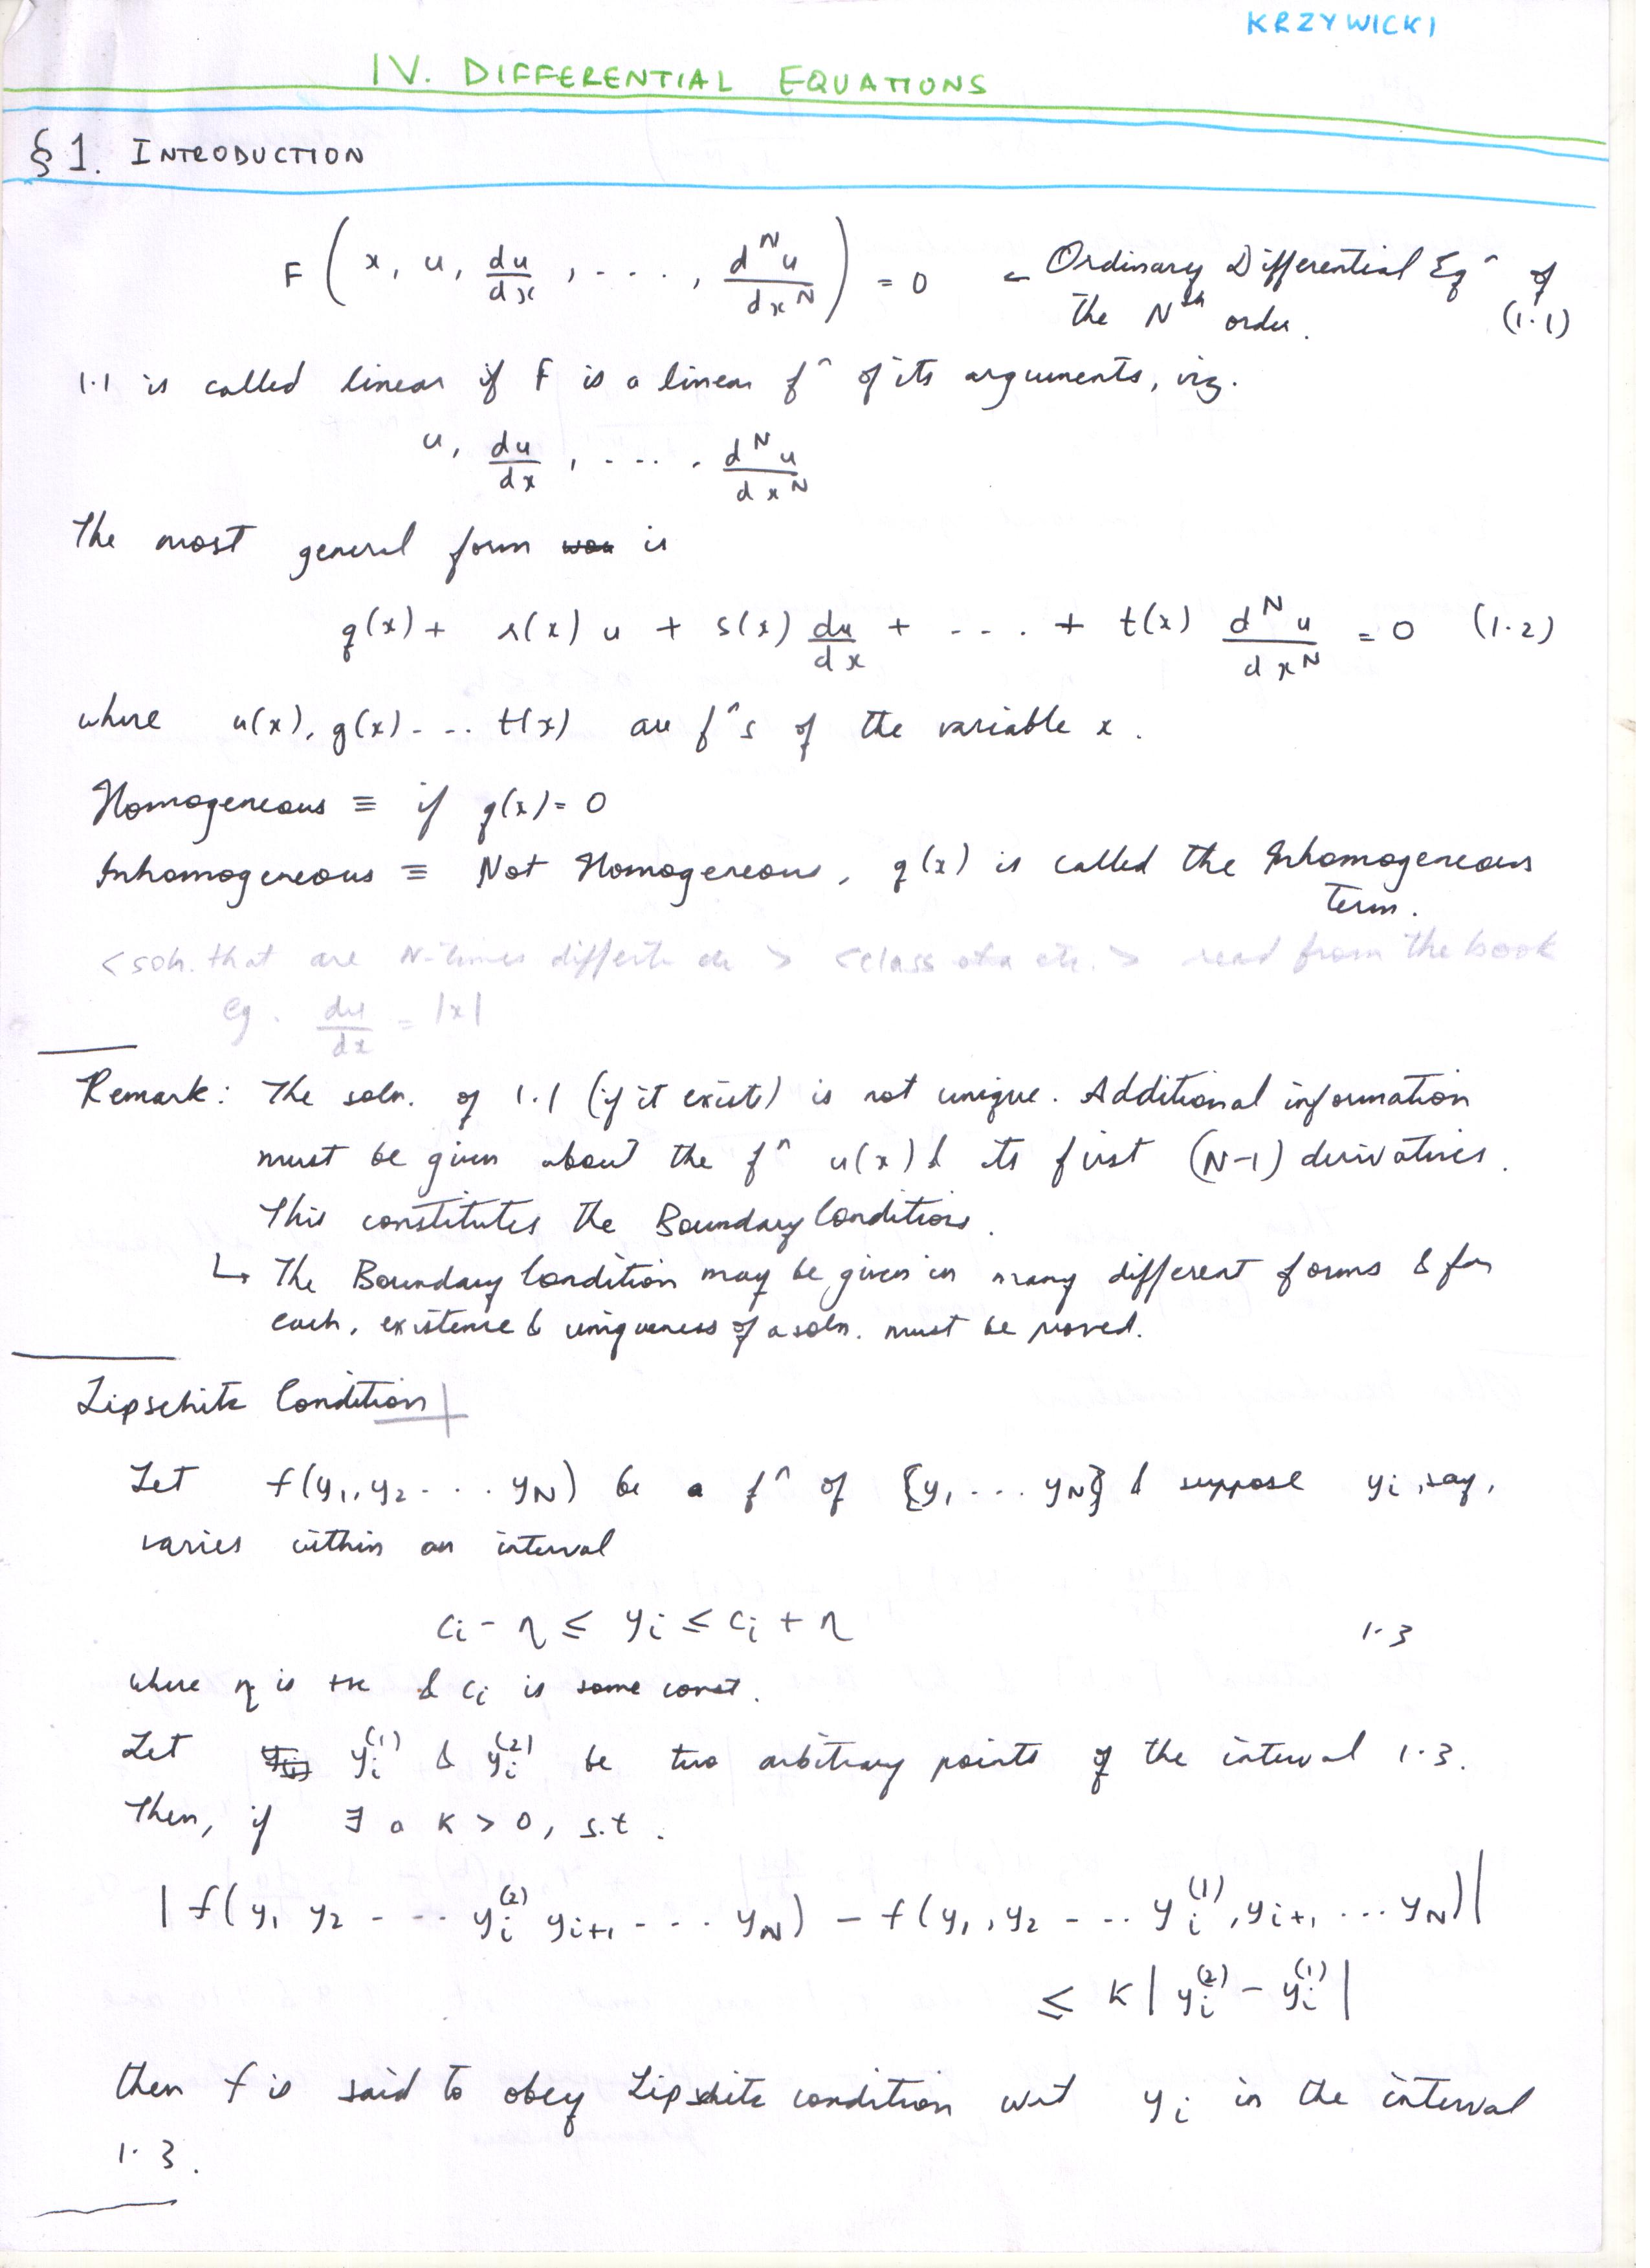 KRZYWICKI
IV. DIFFERENTIAL EQUATIONS
§1. INTRODUCTION
F ( x, u, du/dx , . . . . , d^N u/dx^N ) = 0 - Ordinary Differential Eq^n of
the N^th order. (1.1)
1.1 is called linear if F is a linear f^n of its arguments, viz.
u, du/dx , . . . . , d^N u/dx^N
The most general form is
q(x) + r(x) u + s(x) du/dx + . . . . + t(x) d^N u/dx^N = 0 (1.2)
where u(x), q(x) - - . . t(x) are f^n s of the variable x .
Homogeneous ≡ if q(x) = 0
Inhomogeneous ≡ Not Homogeneous, q(x) is called the Inhomogeneous
Term.
< soln. that are N-times > < class etc. > read from the book
eg. du/dx = |x|
Remark: The soln. of 1.1 (if it exist) is not unique. Additional information
must be given about the f^n u(x) & its first (N-1) derivatives.
This constitutes the Boundary Conditions.
↳ The Boundary Condition may be given in many different forms & for
each, existence & uniqueness of a soln. must be proved.
Lipschitz Condition
Let f(y₁, y₂ . . . y_N) be a f^n of {y₁ . . . y_N} & suppose y_i, say,
varies within an interval
c_i - η ≤ y_i ≤ c_i + η 1.3
where η is +ve & c_i is some const.
Let y_i^(1) & y_i^(2) be two arbitrary points of the interval 1.3.
Then, if ∃ a K > 0, s.t.
| f( y₁ y₂ - - . . y_i^(2) y_i+1 - . . . y_N) - f(y₁, y₂ - . . . y_i^(1), y_i+1 . . . y_N)|
≤ K | y_i^(2) - y_i^(1) |
then f is said to obey Lipschitz condition wrt y_i in the interval
1.3.